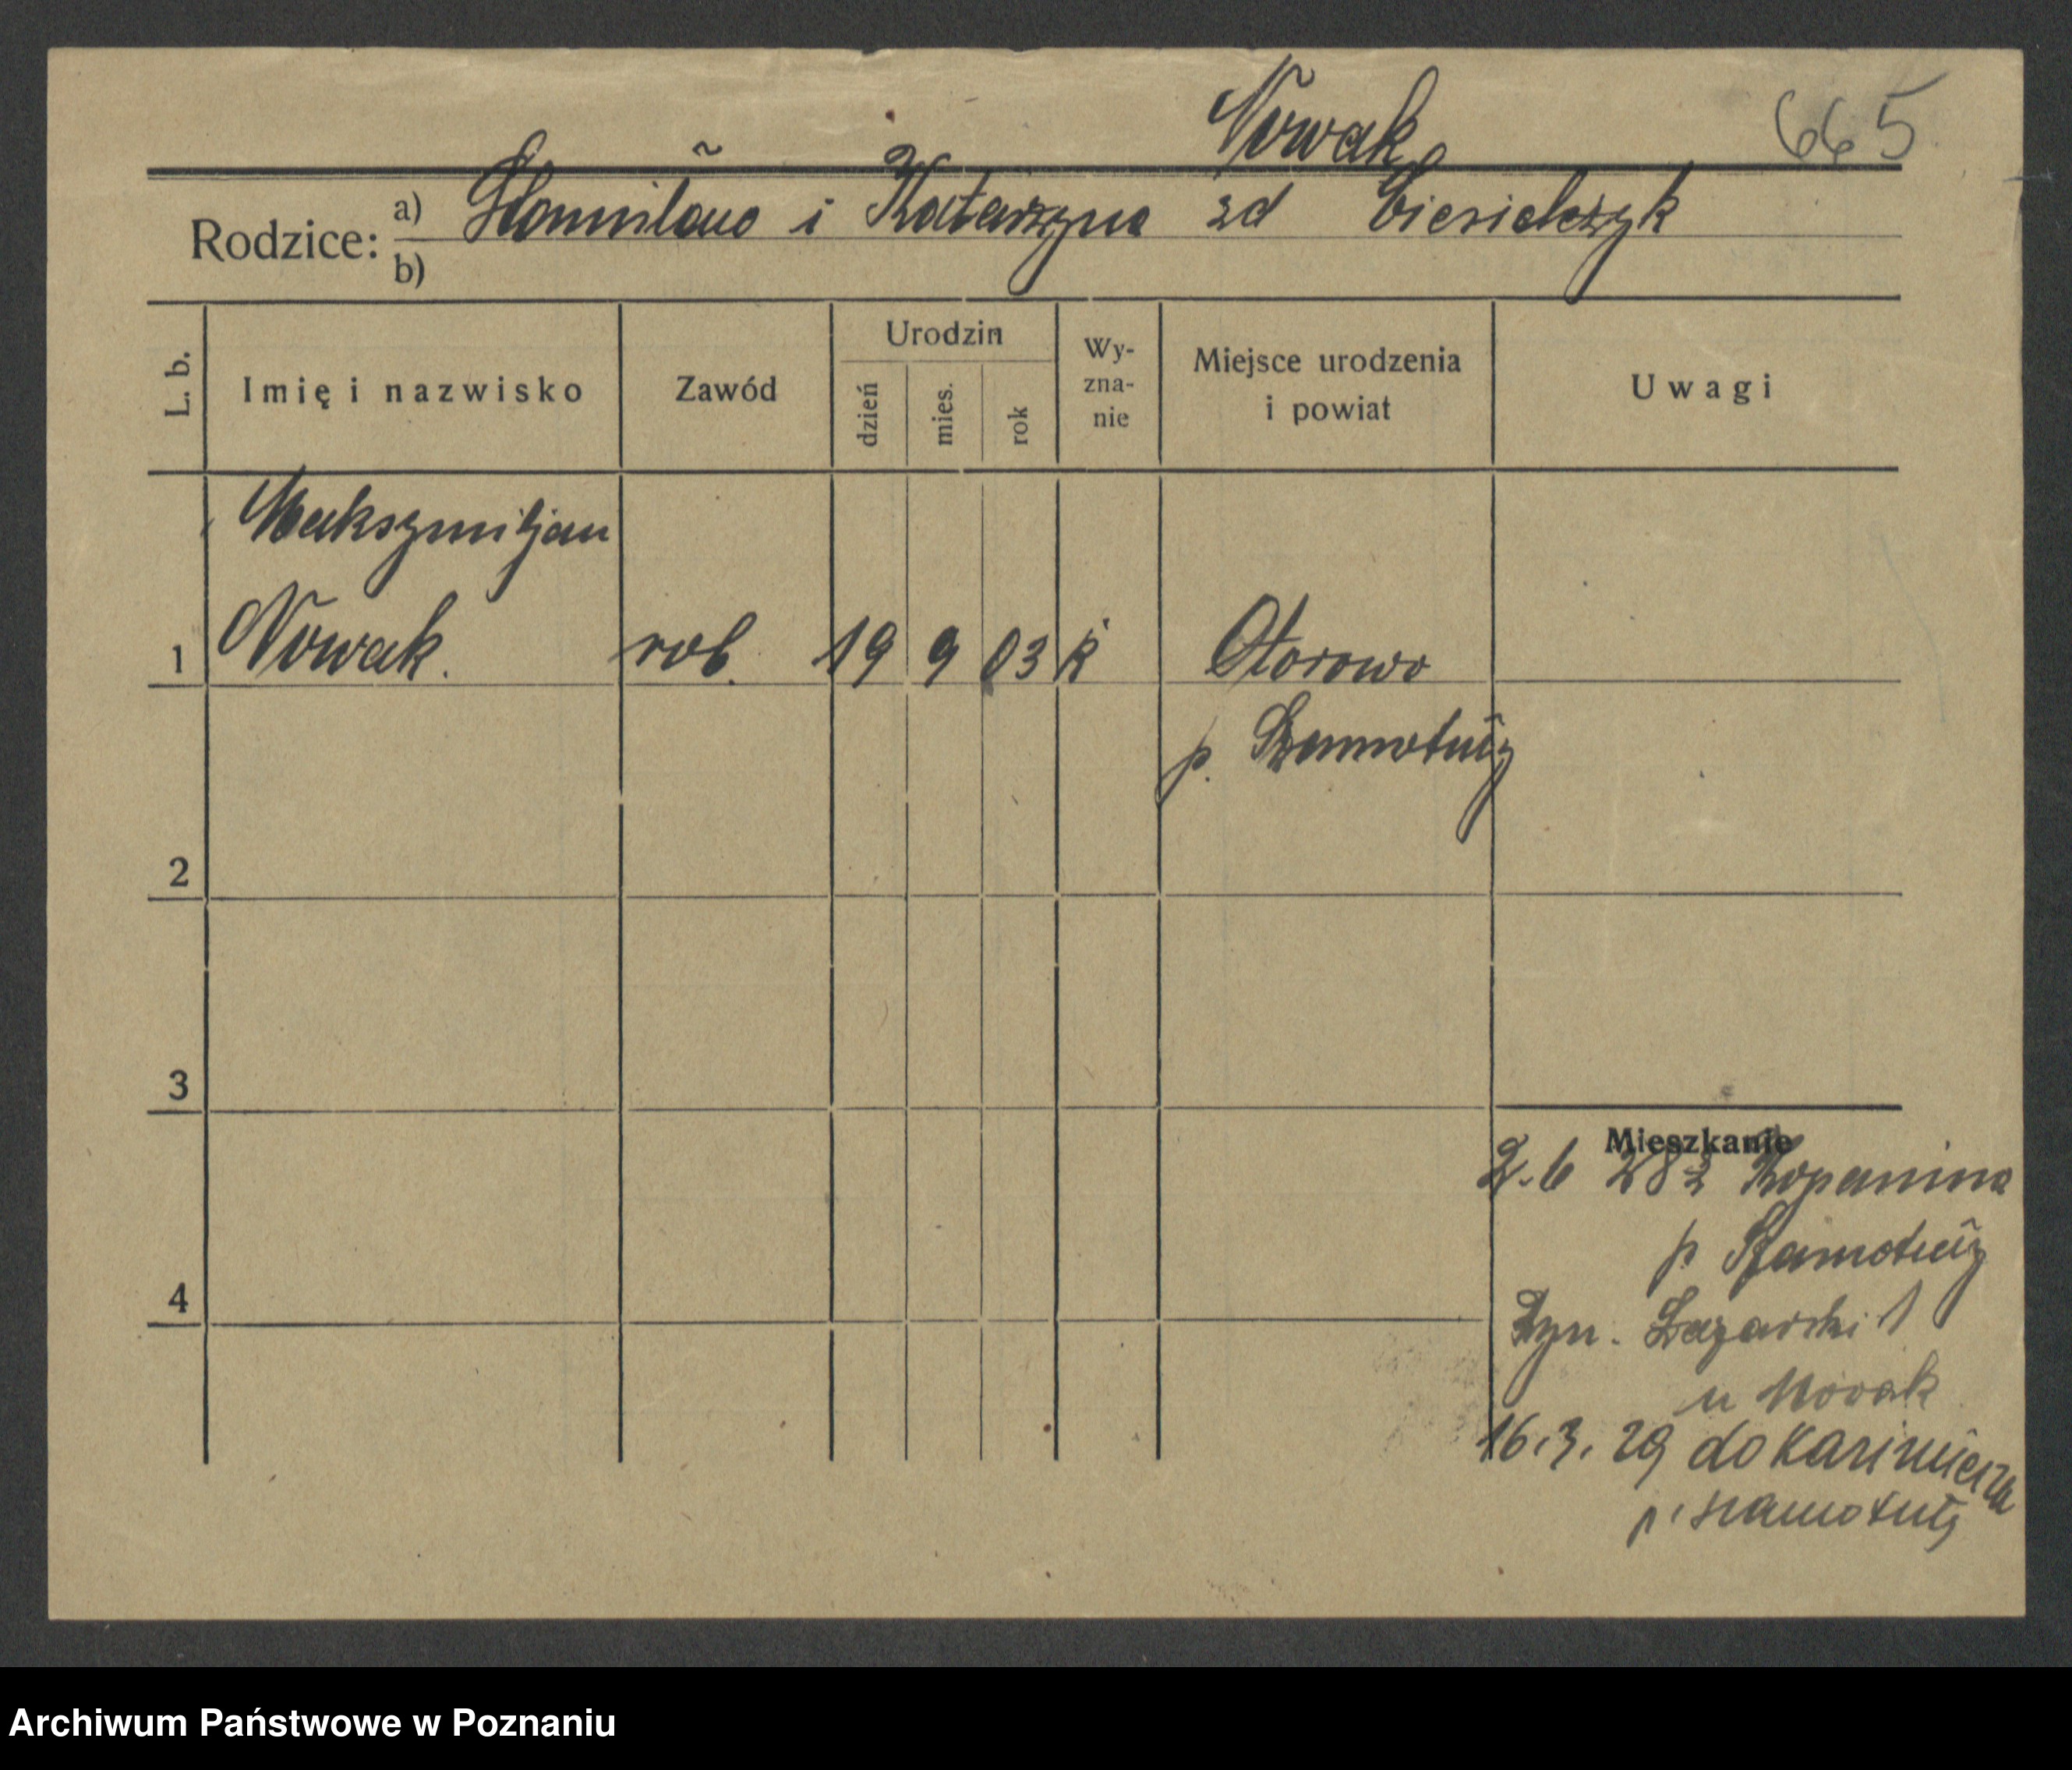 Nowak
665
Rodzice: a) Stanisław i Katarzyna zd Ciesielczyk
b)
L. b.
Imię i nazwisko
Zawód
Urodzin
dzień
mies.
rok
Wy-
zna-
nie
Miejsce urodzenia
i powiat
Uwagi
Maksymiljan
1 Nowak. rob. 19 9 03 k Otorowo
p. Szamotuły
2
3
4
Mieszkanie
Kopanina
p. Szamotuły
Łazarski 1
u Nowak
16.3.29 do Kazimierz
p. Szamotuły
Archiwum Państwowe w Poznaniu